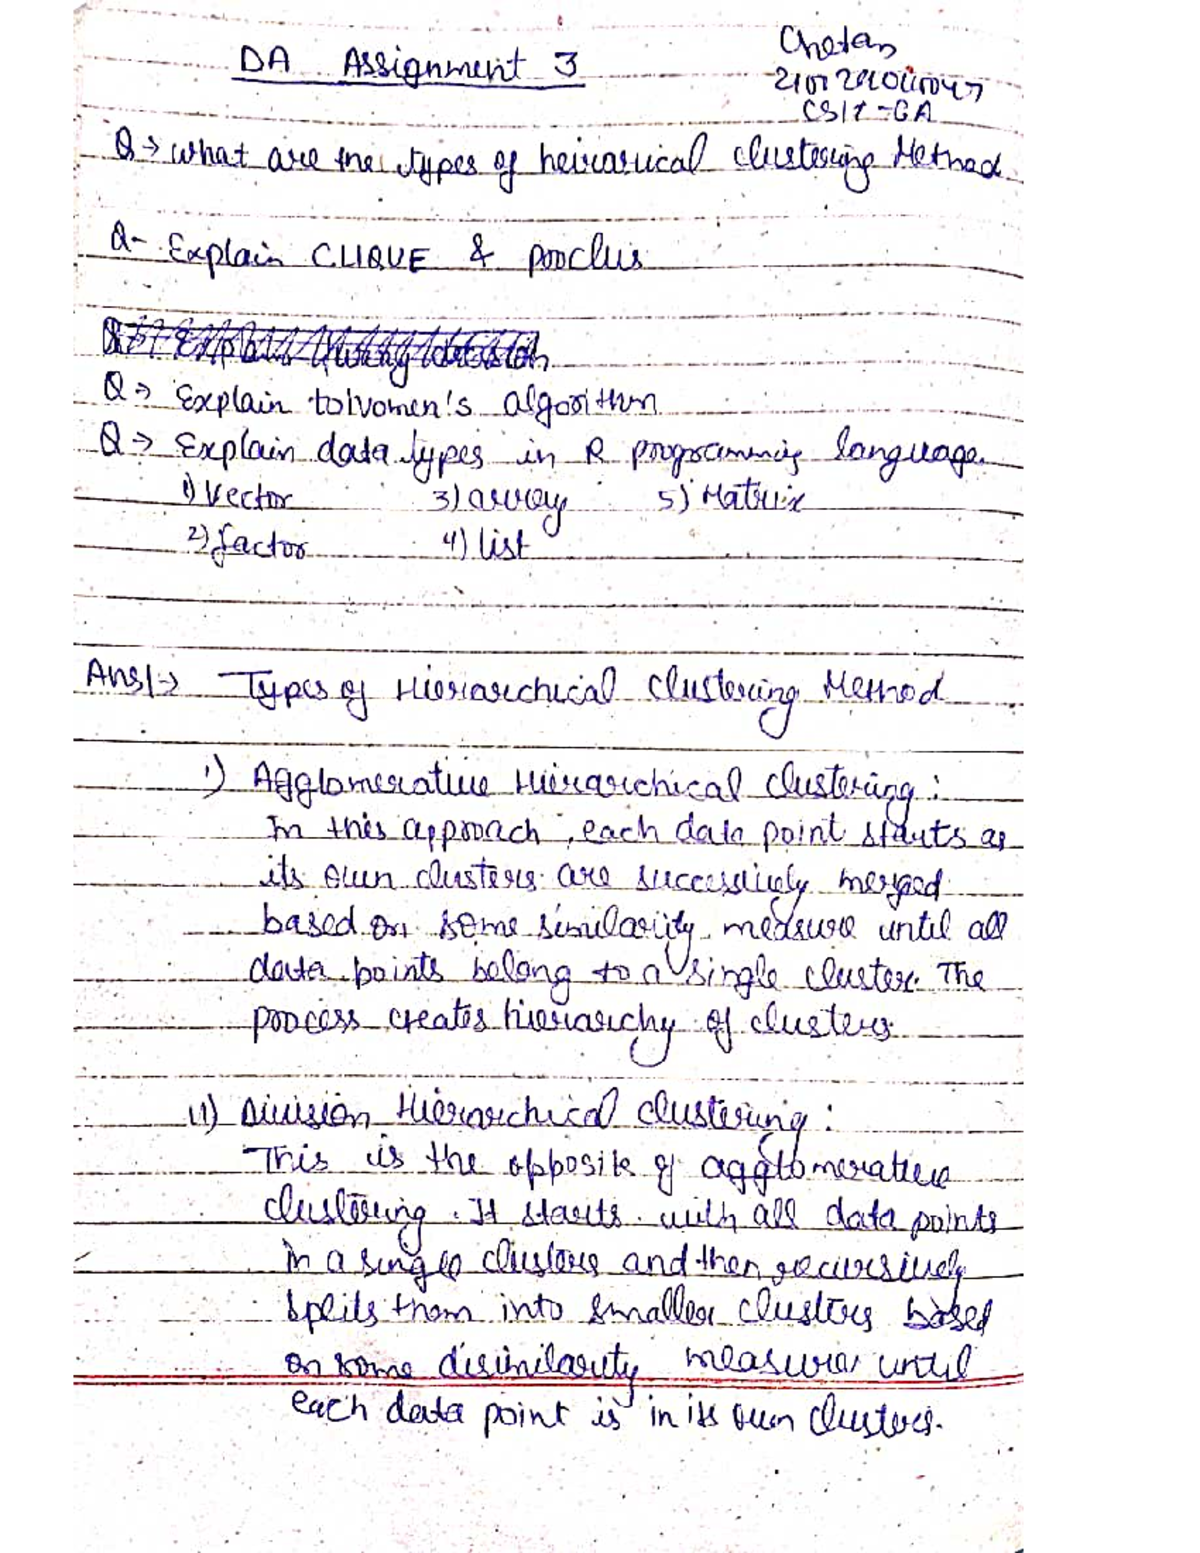 DA Assignment 3
Chetan
CSIT-6A
Q→ what are the types of heirarical clustering Method
Q- Explain CLIQUE & proclus
Q→ Explain tolvomen's algorithm
Q→ Explain data types in R programming language.
1) Vector 3) array 5) Matrix
2) factor 4) list
Ans1→ Types of Hierarchical clustering Method
1) Agglomerative Hierarchical clustering:
In this approach, each data point starts as
its own clusters are successively merged
based on some similarity measure until all
data points belong to a single cluster. The
process creates hierarchy of clusters
11) Division Hierarchical clustering:
This is the opposite of agglomerative
clustering. It starts with all data points
in a single clusters and then recursively
splits them into smaller clusters based
on some disimilarity measures until
each data point is in its own clusters.